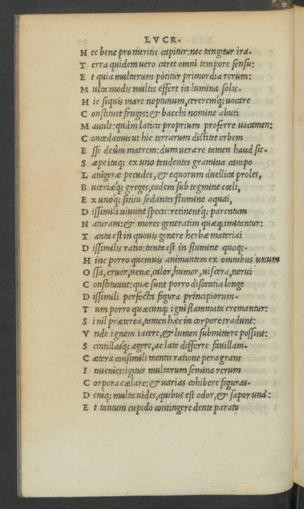 LVCR.
N ec bene promeritis capitur: nec tangitur ira.
T erra quidem uero caret omni tempore sensu:
E t quia multarum potitur primordia rerum:
M ulta modis multis effert in lumina solis.
H ic siquis mare neptunum, cereremq; uocare
C onstituet fruges: & bacchi nomine abuti
M auult: quàm laticis proprium proferre uocamen:
C oncedamus ut hic terrarum dictitet orbem
E sse deûm matrem: dum uera re tamen haud sit.
S æpe itaq; ex uno tendentes gramina campo
L anigeræ pecudes, & equorum duellica proles,
B uceriæq; greges, eodem sub tegmine cæli,
E x unoq; sitim sedantes flumine aquai,
D issimili uiuunt specie: retinentq; parentum
N aturam: & mores generatim quæq; imitantur:
T anta est in quouis genere herbæ materiai
D issimilis ratio: tanta est in flumine quoq;
H inc porro quamuis animantem ex omnibus unum
O ssa, cruor, uenæ, calor, humor, uiscera, nerui
C onstituunt: quæ sunt porro distantia longe
D issimili perfecta figura principiorum.
T um porro quæcunq; igni flammata cremantur:
S i nil præterea, tamen hæc in corpore tradunt:
V nde ignem iacere, & lumen submittere possint:
S cintillasq; agere, ac late differre fauillam.
C ætera consimili mentis ratione peragrans
I nuenies: igitur multarum semina rerum
C orpora cælare: & uarias cohibere figuras.
D eniq; multa uides, quibus est odor, & sapor unà:
E t tantum cupido contingere dente parato